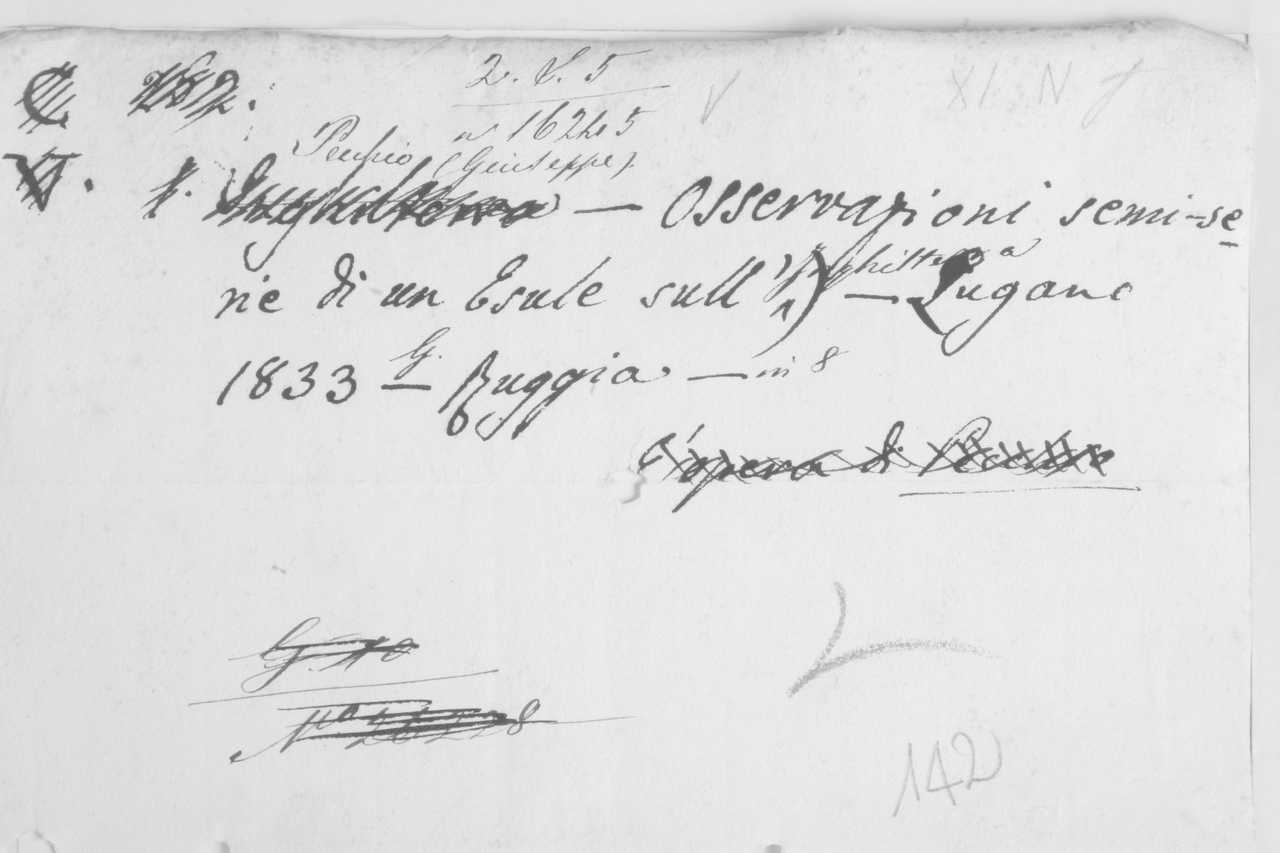 C 282.
2. S. 5
XI. N
n° 16245
V.
Pecchio (Giuseppe)
Inghilterra — Osservazioni semi-se
rie di un Esule sull'Inghilterra) — Lugano
1833 — G. Ruggia — in 8
opera di Pecchio
G. 10
N° 8
142